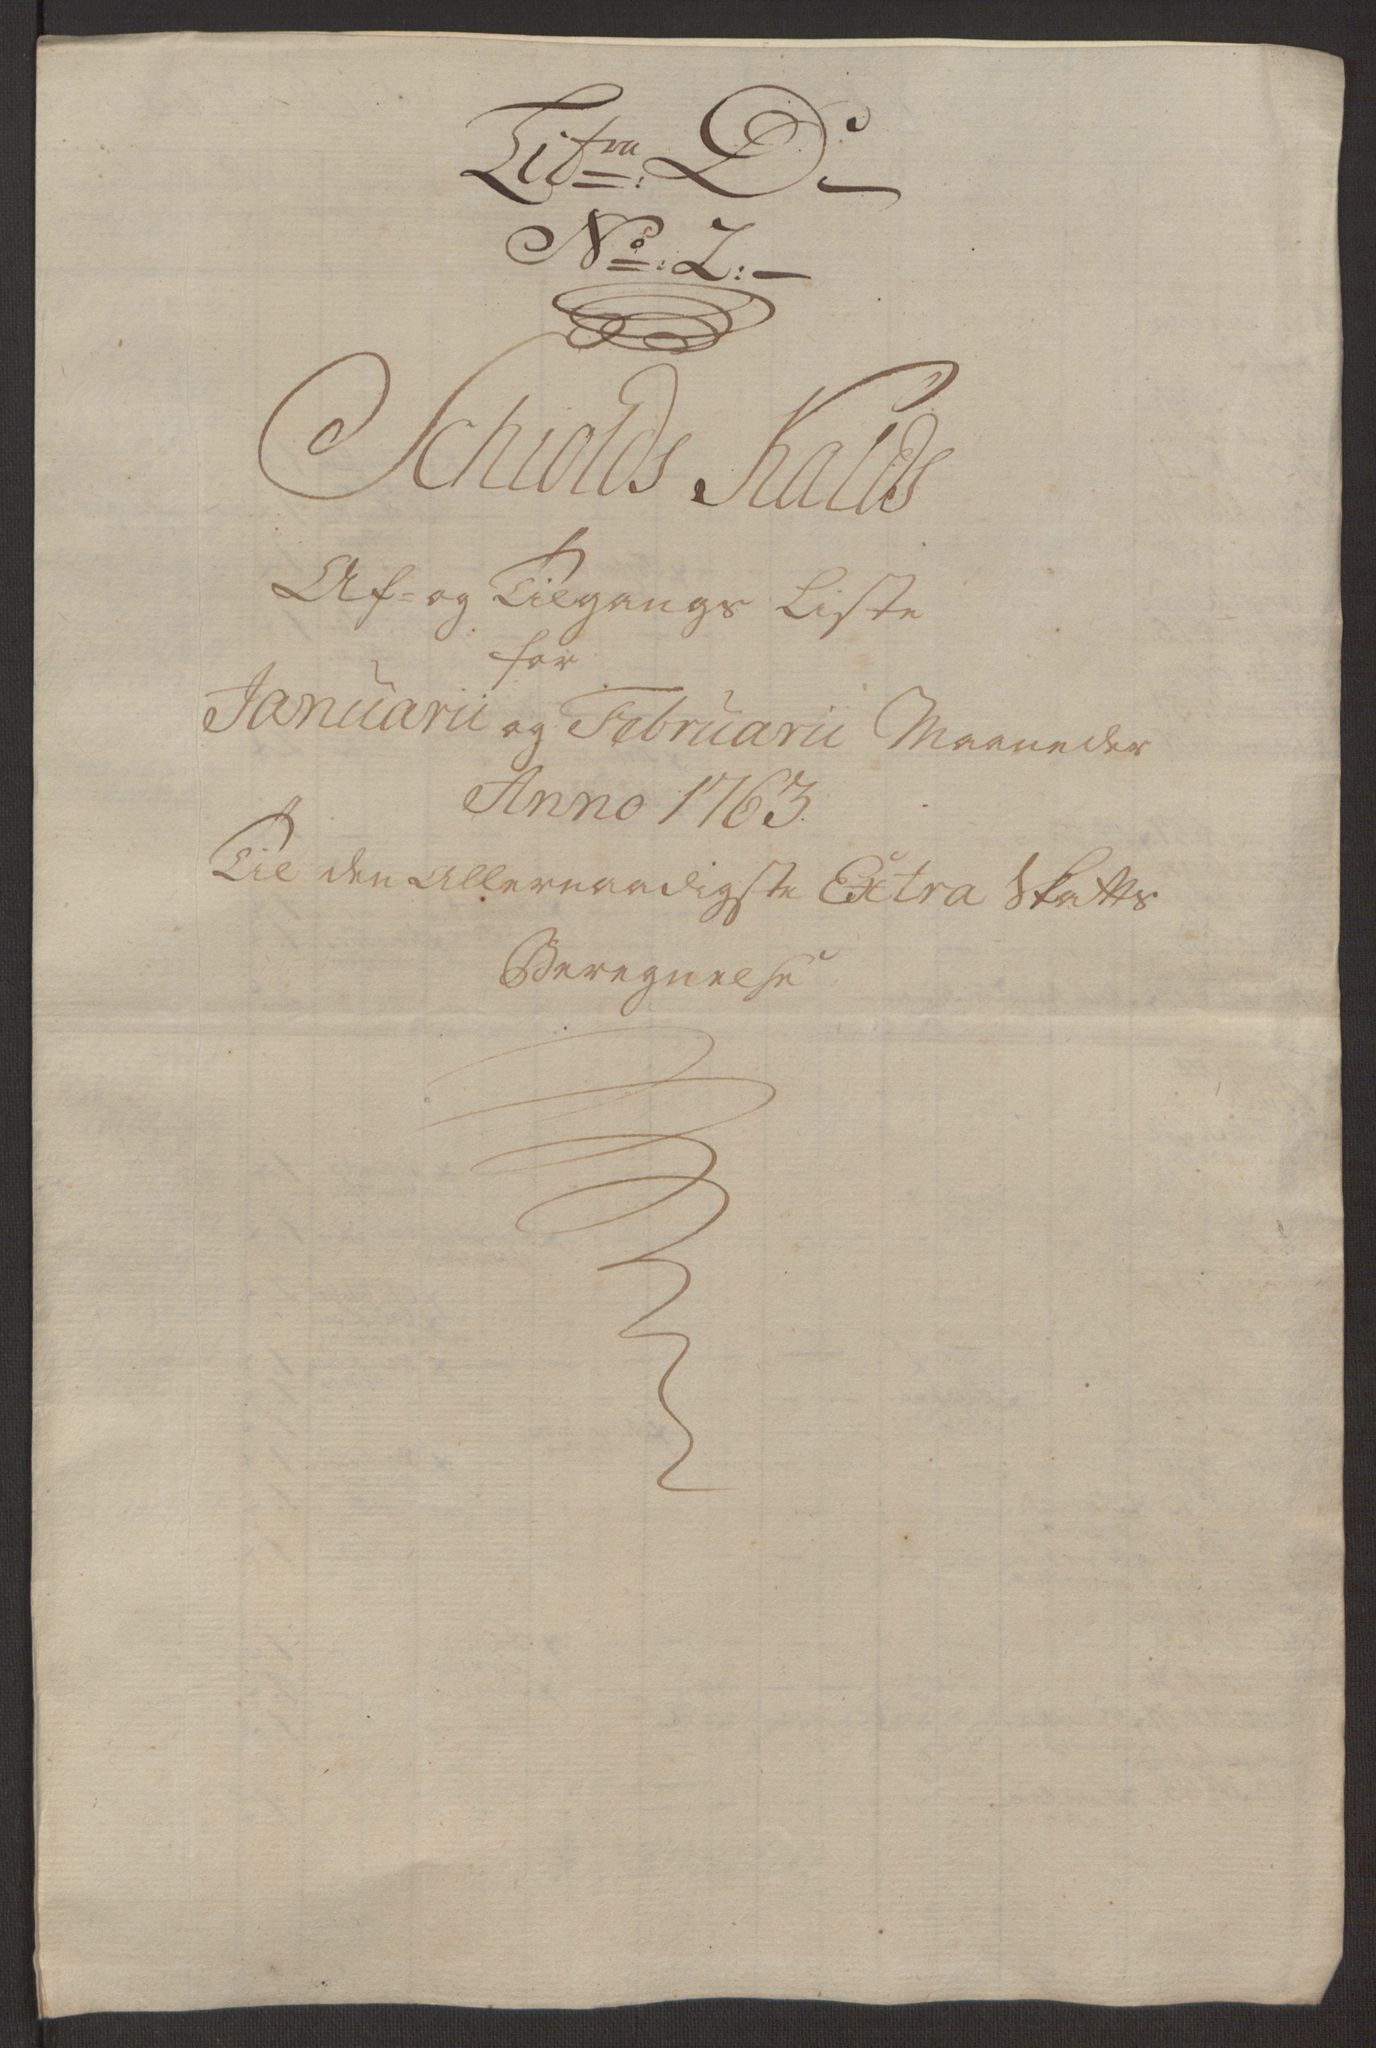 Litra: D:
No: 2:
Schiolds Kalds
Af- og Tilgangs Liste
for
Januarii og Februarii Maaneder
Anno 1763.
Til den Allernaadigste Extra Skatts
Beregnelse